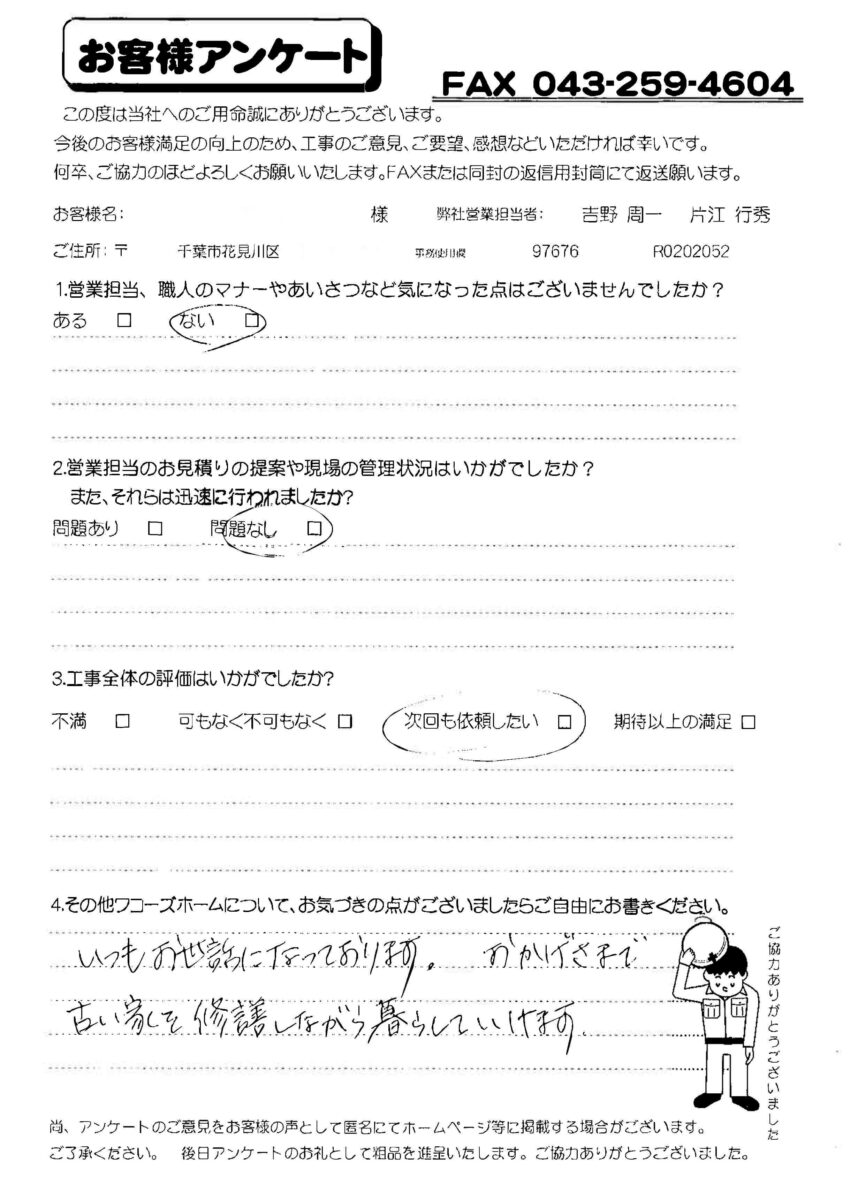 お客様アンケート
FAX 043-259-4604
この度は当社へのご用命誠にありがとうございます。
今後のお客様満足の向上のため、工事のご意見、ご要望、感想などいただければ幸いです。
何卒、ご協力のほどよろしくお願いいたします。FAXまたは同封の返信用封筒にて返送願います。
お客様名: 様 弊社営業担当者: 吉野 周一 片江 行秀
ご住所: 〒 千葉市花見川区 事務使用欄 97676 R0202052
1.営業担当、職人のマナーやあいさつなど気になった点はございませんでしたか？
ある □ ない □
2.営業担当のお見積りの提案や現場の管理状況はいかがでしたか？
また、それらは迅速に行われましたか?
問題あり □ 問題なし □
3.工事全体の評価はいかがでしたか?
不満 □ 可もなく不可もなく □ 次回も依頼したい □ 期待以上の満足 □
4.その他ワコーズホームについて、お気づきの点がございましたらご自由にお書きください。
いつもお世話になっております。 おかげさまで
古い家を修繕しながら暮らしていけます
ご協力ありがとうございました
尚、アンケートのご意見をお客様の声として匿名にてホームページ等に掲載する場合がございます。
ご了承ください。 後日アンケートのお礼として粗品を進呈いたします。ご協力ありがとうございました。